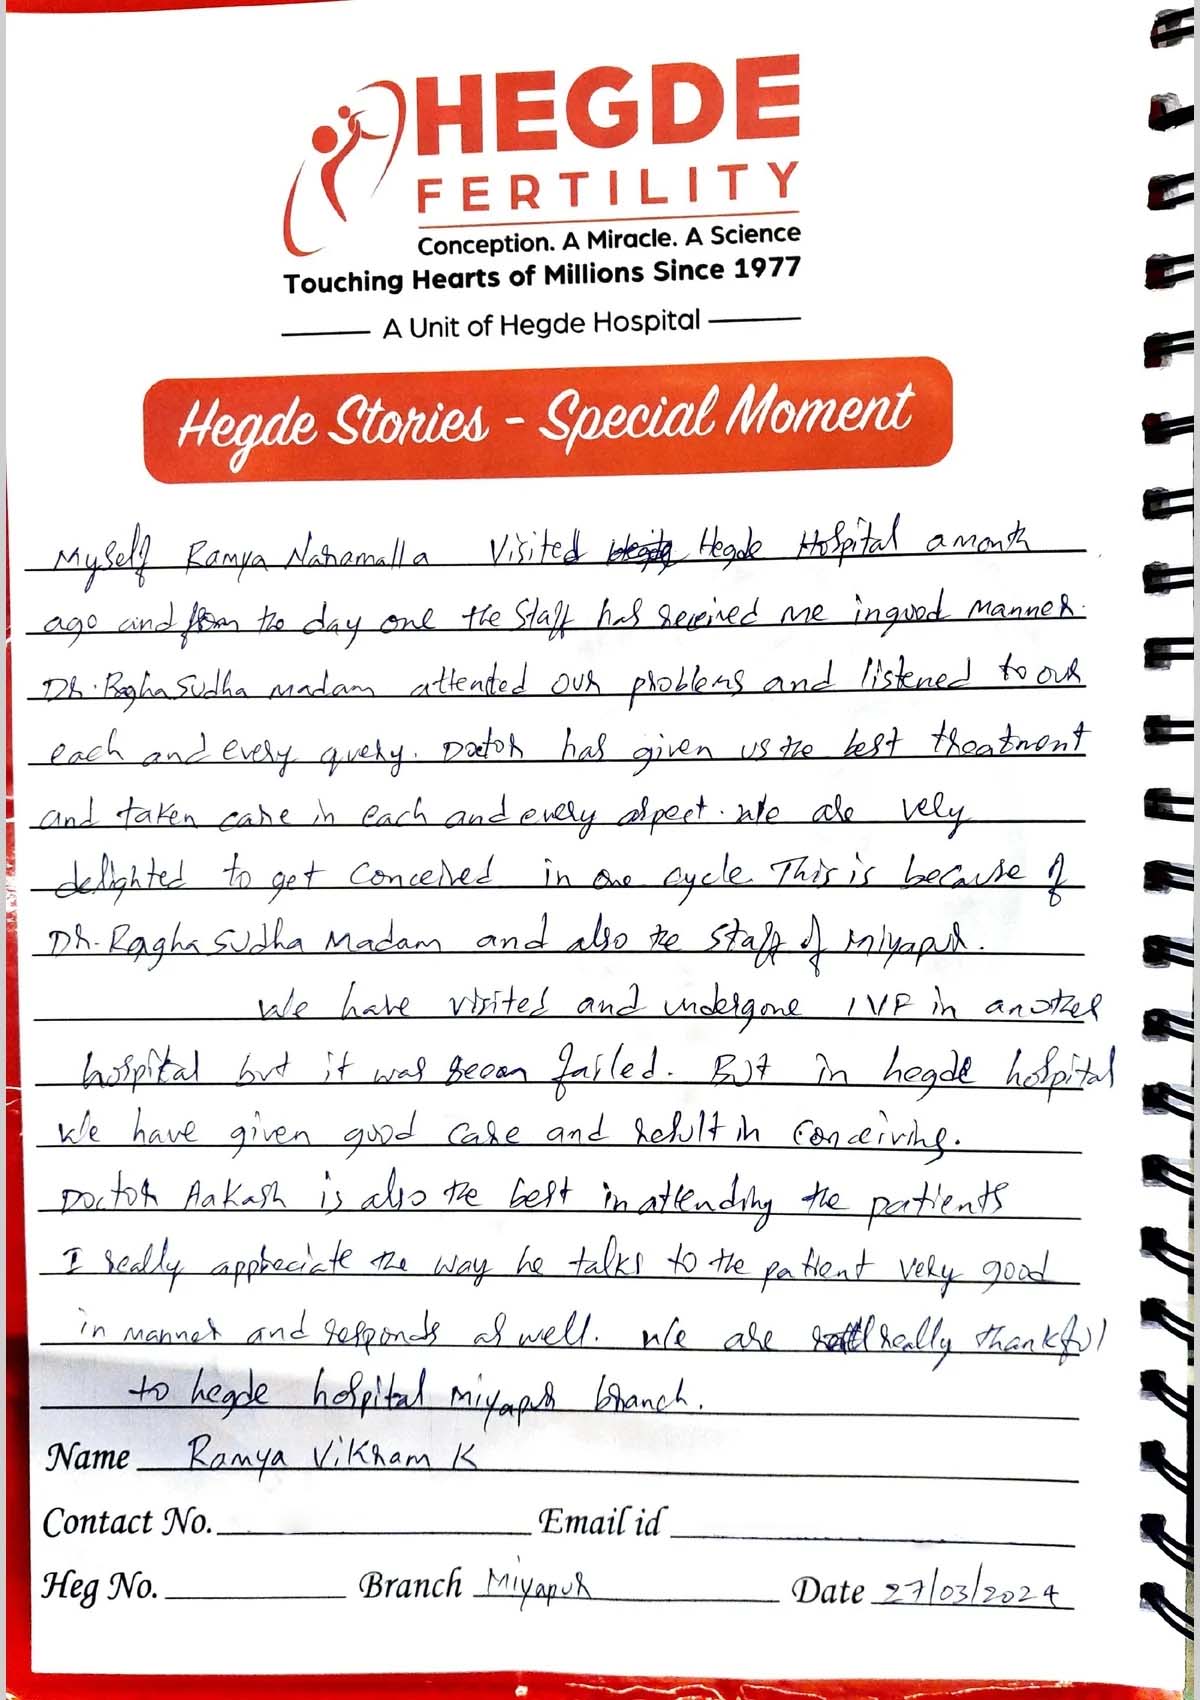 HEGDE
FERTILITY
Conception. A Miracle. A Science
Touching Hearts of Millions Since 1977
A Unit of Hegde Hospital
Hegde Stories - Special Moment
Myself Ramya Naramalla Visited Hegde Hospital a month
ago and from the day one the staff has received me in good manner.
Dr. Ragha Sudha madam attented our problems and listened to our
each and every query. Doctor has given us the best treatment
and taken care in each and every aspect. We are very
delighted to get conceived in one cycle. This is because of
Dr. Ragha Sudha Madam and also the staff of Miyapur.
We have visited and undergone IVF in another
hospital but it was been failed. But in hegde hospital
We have given good care and result in conceiving.
Doctor Aakash is also the best in attending the patients
I really appreciate the way he talks to the patient very good
in manner and responds as well. We are really thankful
to hegde hospital miyapur branch.
Name Ramya Vikram K
Contact No. Email id
Heg No. Branch Miyapur Date 27/03/2024